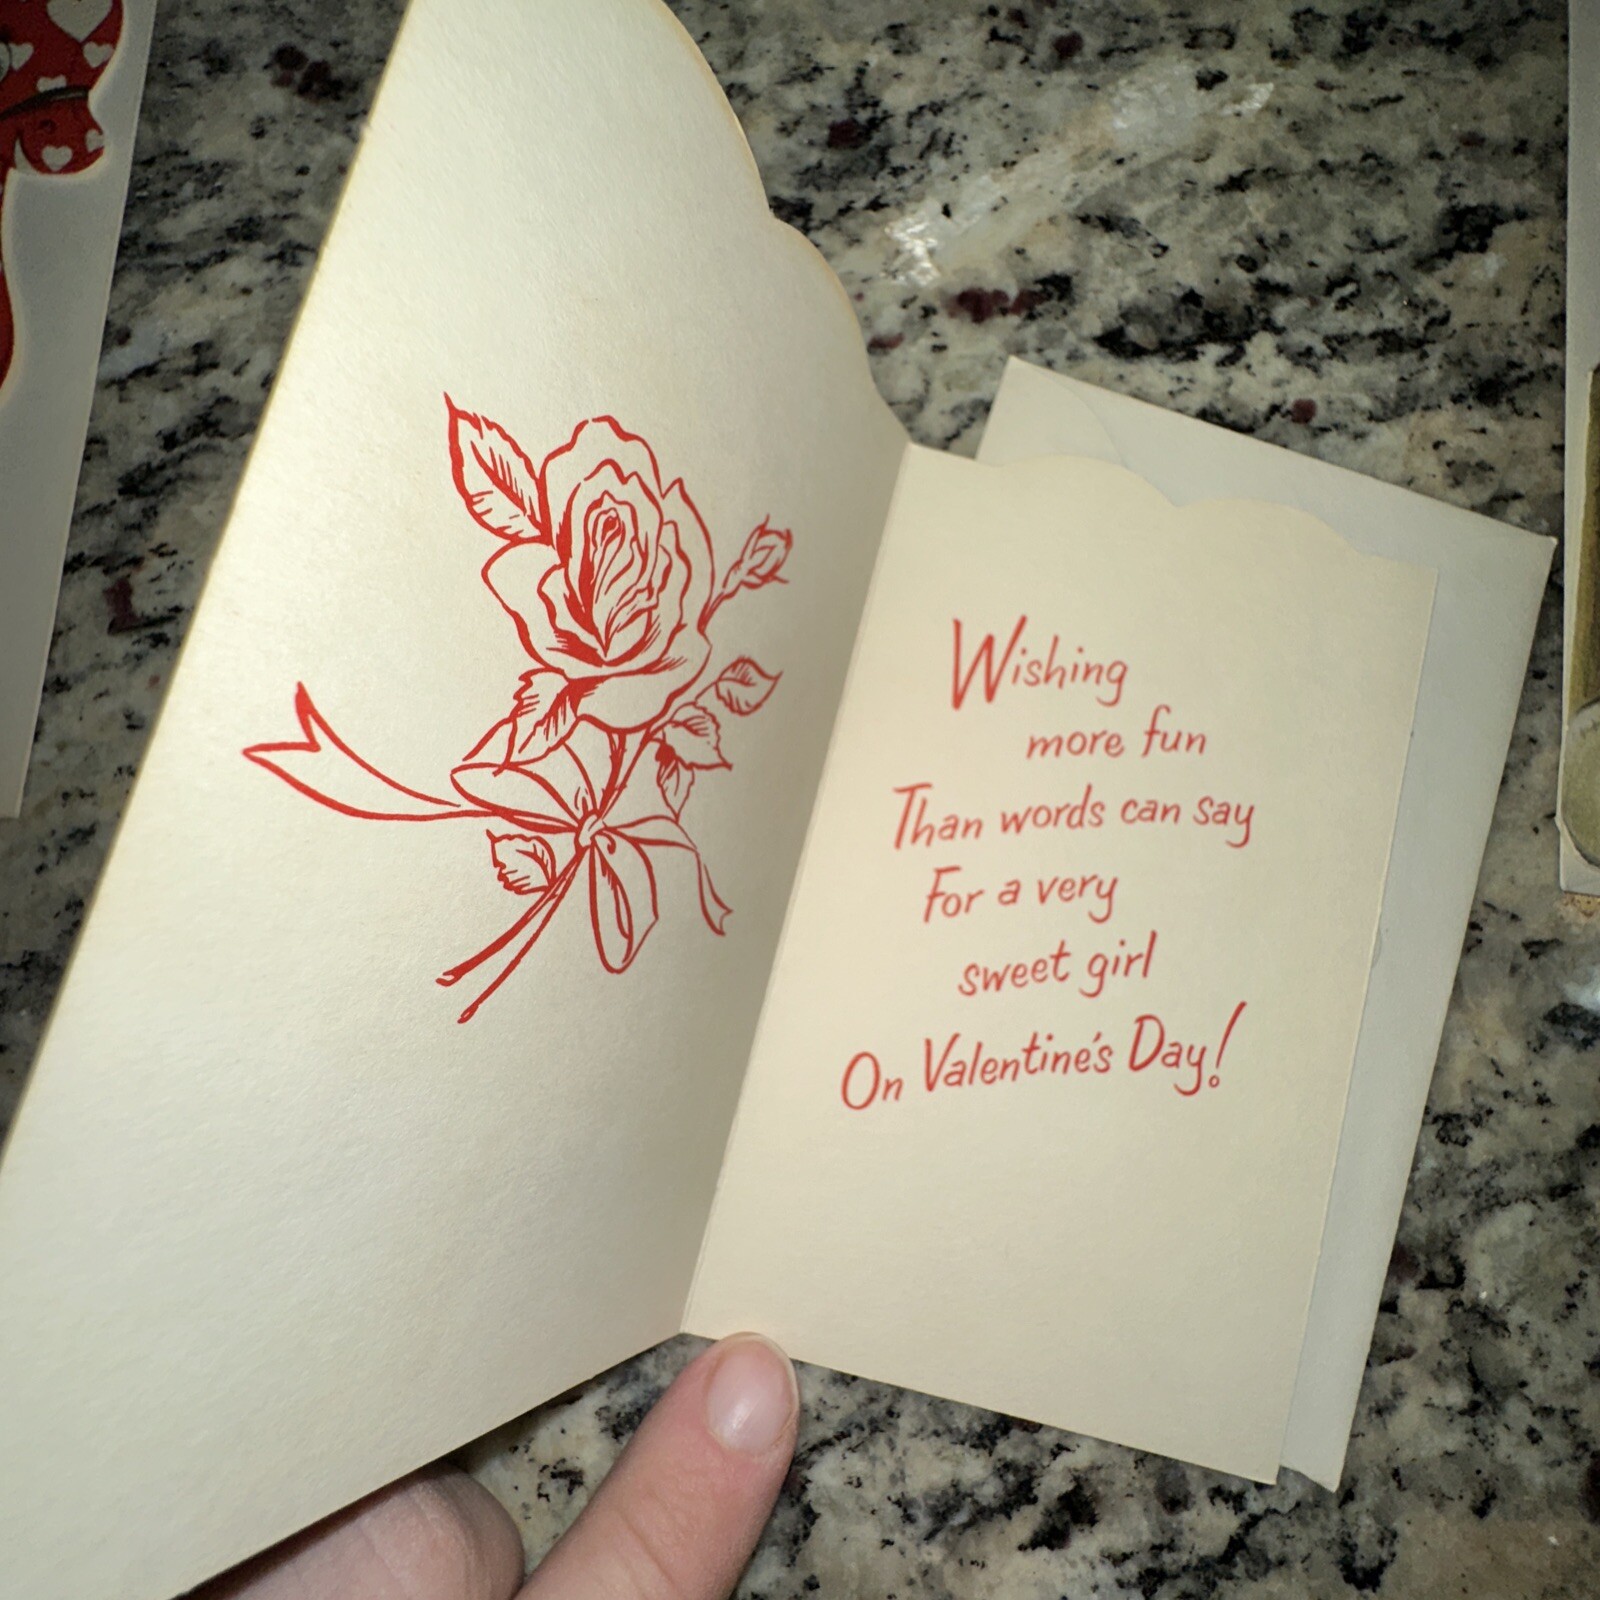 Wishing
more fun
Than words can say
For a very
sweet girl
On Valentine's Day!